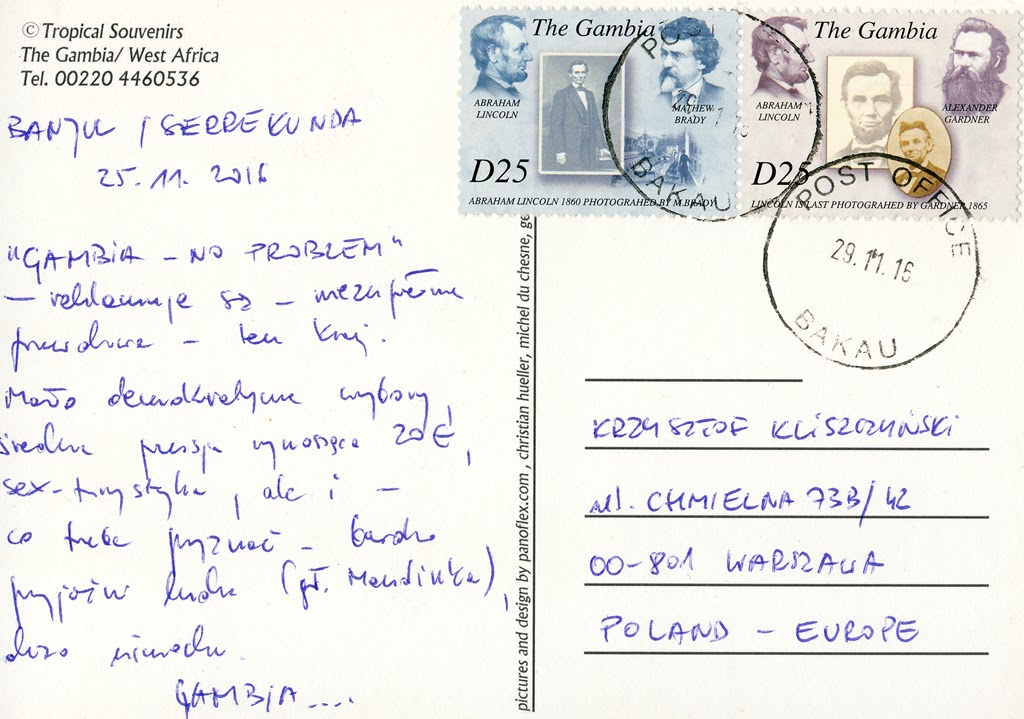 © Tropical Souvenirs
The Gambia/ West Africa
Tel. 00220 4460536
BANJUL / SERREKUNDA
25. 11. 2016
"GAMBIA - NO PROBLEM"
— reklamuje się - niezupełnie
prawdziwie - ten kraj.
Mało demokratyczne wybory,
średnia pensja wynosząca 20€,
sex-turystyka, ale i -
co trzeba przyznać - bardzo
przyjaźni ludzie (gł. Mandinka),
dużo uśmiechu.
GAMBIA....
The Gambia
ABRAHAM
LINCOLN
MATHEW
BRADY
D25
ABRAHAM LINCOLN 1860 PHOTOGRAHED BY M.BRADY
The Gambia
ABRAHAM
LINCOLN
ALEXANDER
GARDNER
D25
LINCOLN IS LAST PHOTOGRAHED BY GARDNER 1865
POST
BAKAU
POST OFFICE
29.11.16
BAKAU
pictures and design by panoflex.com , christian hueller, michel du chesne,
KRZYSZTOF KLISZCZYŃSKI
ul. CHMIELNA 73B/42
00-801 WARSZAWA
POLAND - EUROPE